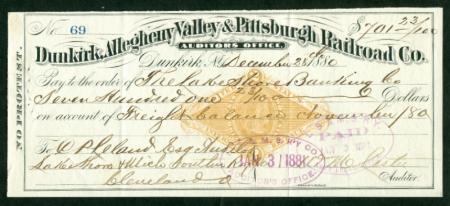 No. 69 $701 23/100
Dunkirk, Allegheny Valley & Pittsburgh Railroad Co.
AUDITOR'S OFFICE
Dunkirk, N.Y. December 28th 1880
Pay to the order of The Lake Shore Banking Co
Seven Hundred one 23/100 Dollars
on account of Freight balance November/80
To C P Leland Esq Auditor
Lake Shore & Mich Southern R
Cleveland O
Auditor.
NO PROTEST.
PAID
JAN 3 1881
AUDITOR'S OFFICE